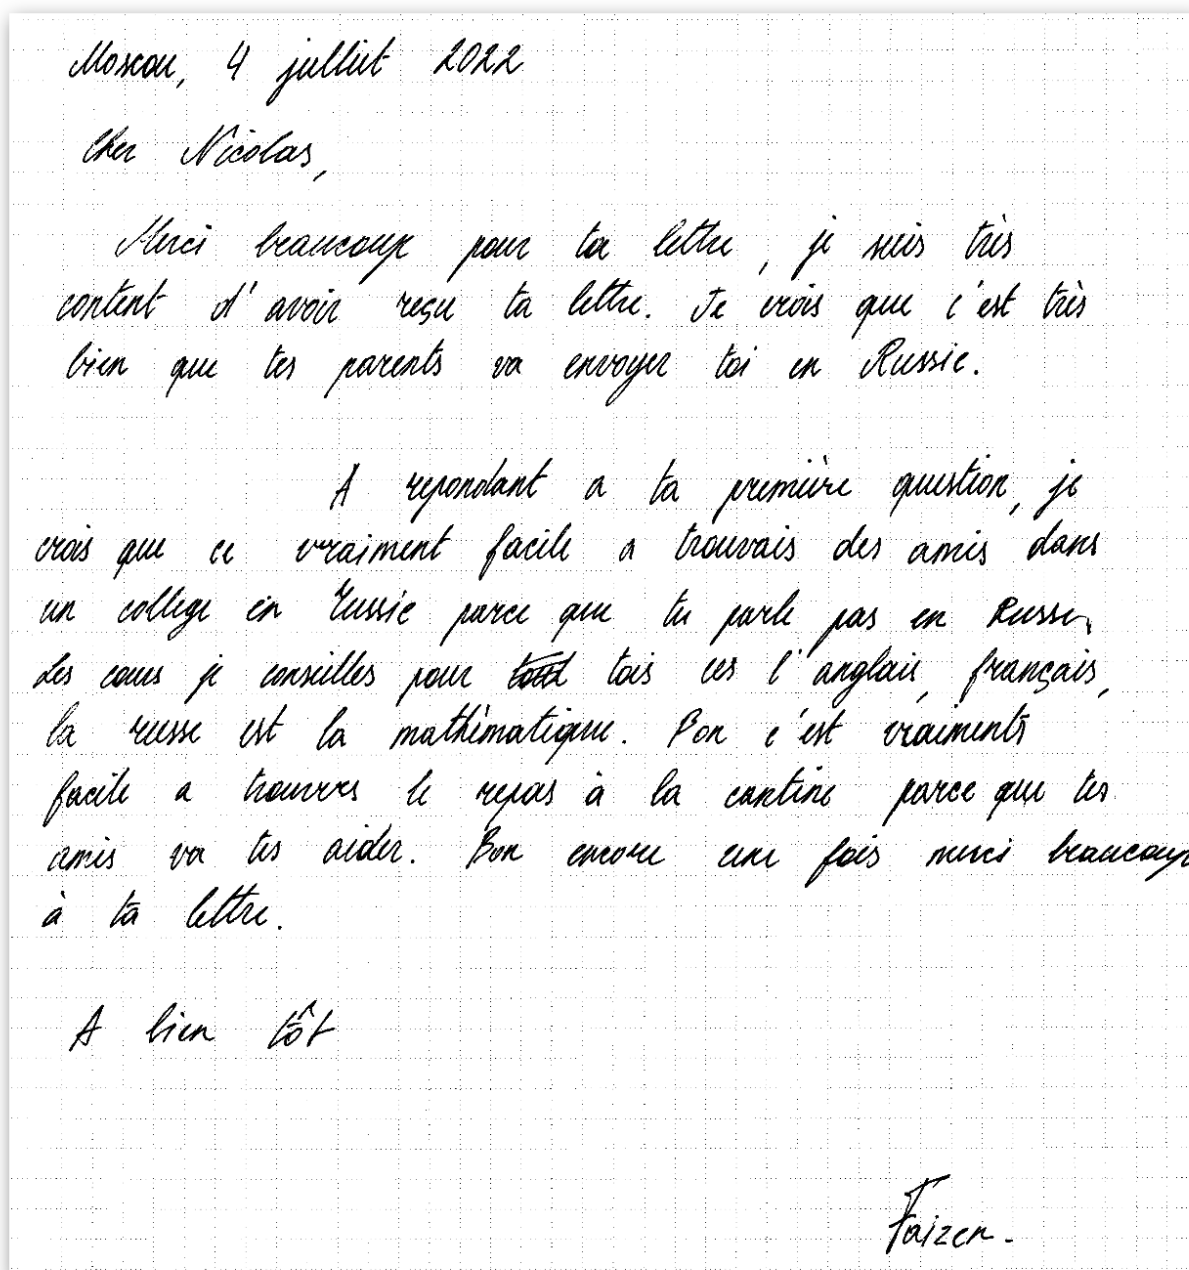 Moscou, 4 julliet 2022
Cher Nicolas,
Merci beaucoup pour ta lettre, je suis très
content d'avoir reçu ta lettre. Je crois que c'est très
bien que tes parents va envoyer toi en Russie.
A repondant a ta première question, je
crois que ce vraiment facile a trouvais des amis dans
un college en Russie parce que tu parle pas en Russe.
Les cours je conseilles pour tois ces l'anglais, français,
la russe est la mathématique. Bon c'est vraiments
facile a trouvres le repas à la cantine parce que tes
amis va tes aider. Bon encore une fois merci beaucoup
à ta lettre.
A bien tôt
Faizen.